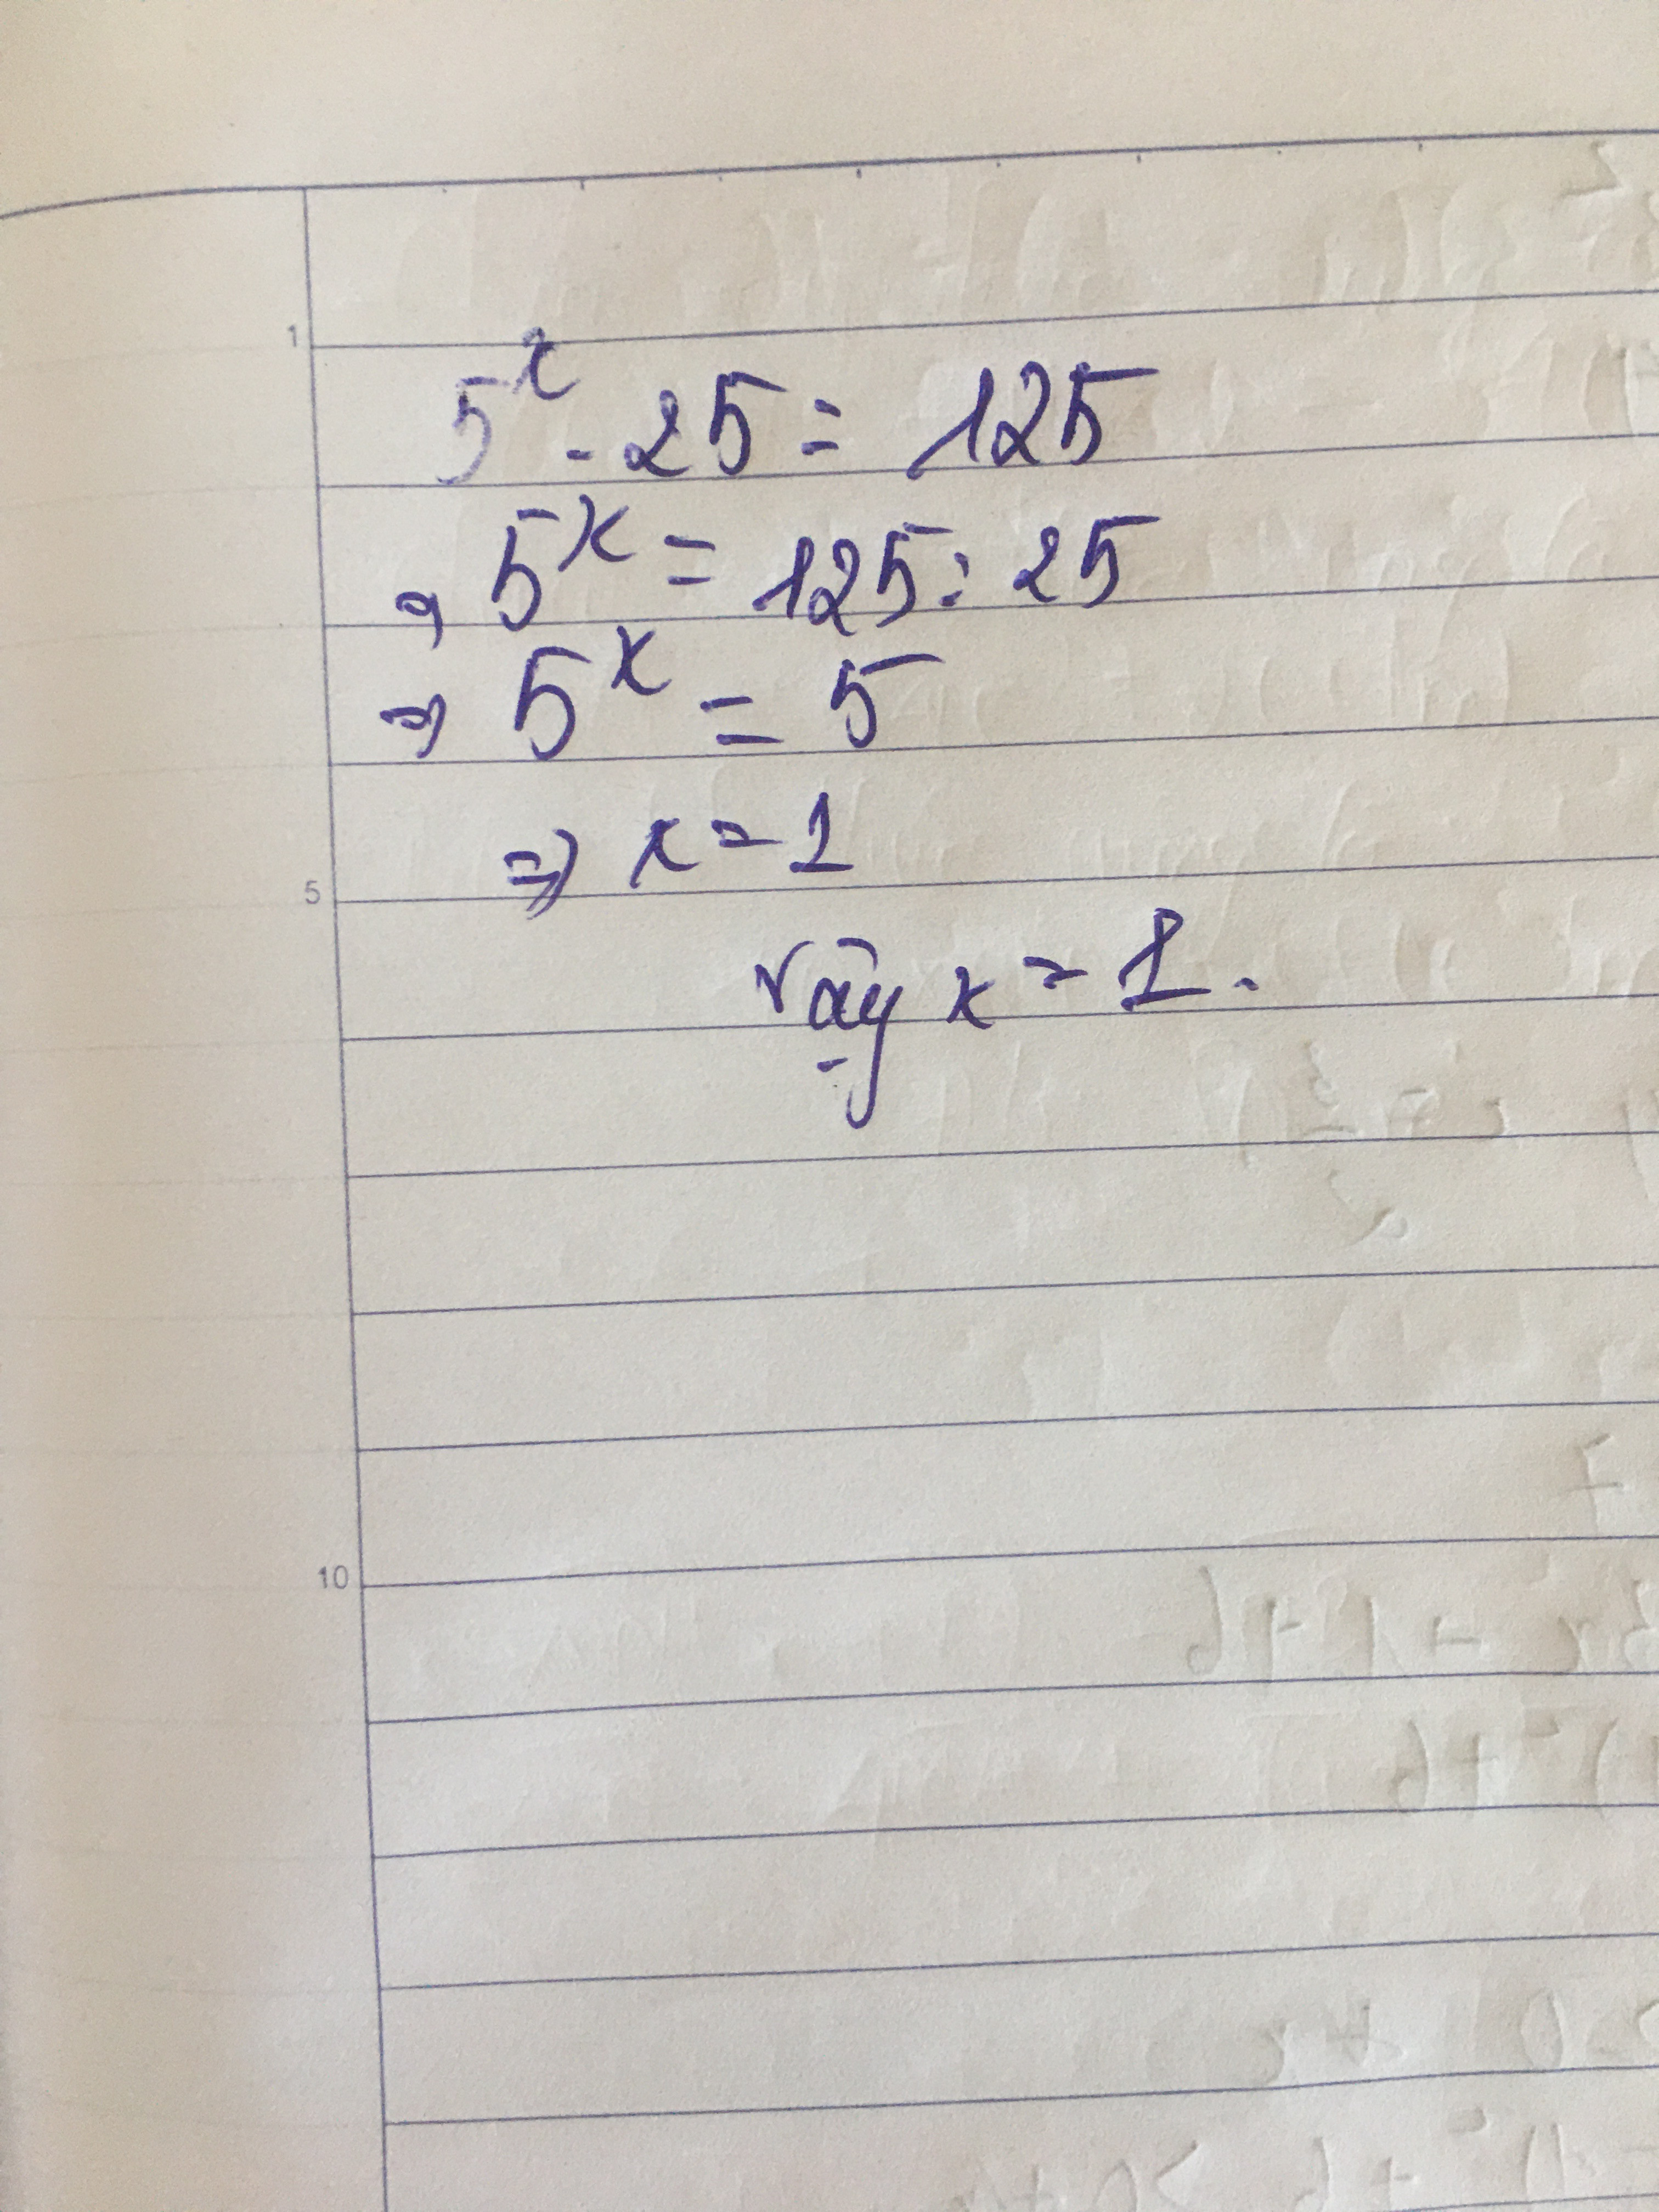 1
5^x . 25 = 125
⇒ 5^x = 125 : 25
⇒ 5^x = 5
⇒ x = 1
5
Vậy x = 1.
10